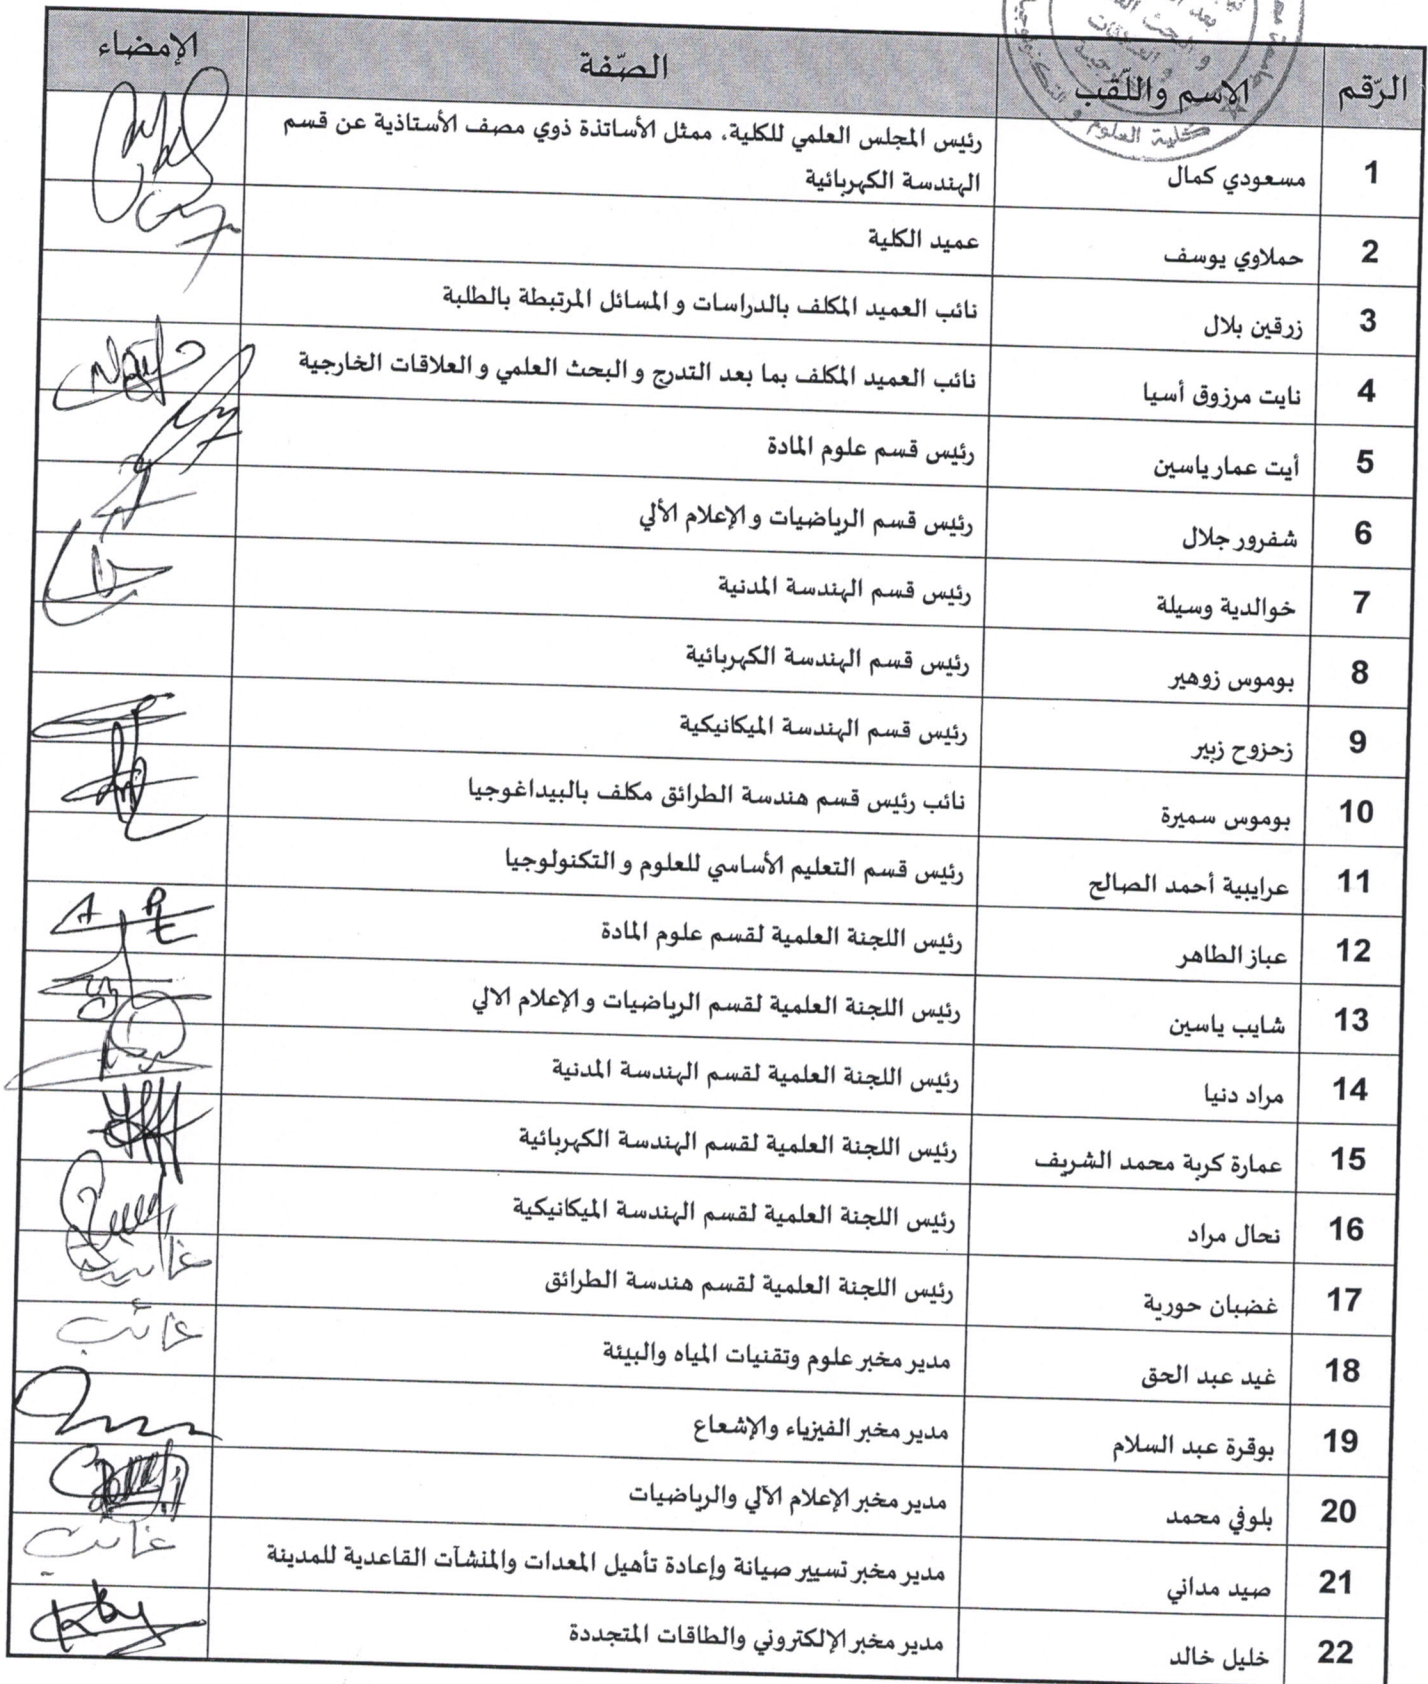 كلية العلوم و التكنولوجيا
الرّقم الاسم واللّقب الصّفة الإمضاء
1 مسعودي كمال رئيس المجلس العلمي للكلية، ممثل الأساتذة ذوي مصف الأستاذية عن قسم
الهندسة الكهربائية
2 حملاوي يوسف عميد الكلية
3 زرقين بلال نائب العميد المكلف بالدراسات و المسائل المرتبطة بالطلبة
4 نايت مرزوق أسيا نائب العميد المكلف بما بعد التدرج و البحث العلمي و العلاقات الخارجية
5 أيت عمار ياسين رئيس قسم علوم المادة
6 شفرور جلال رئيس قسم الرياضيات و الإعلام الألي
7 خوالدية وسيلة رئيس قسم الهندسة المدنية
8 بوموس زوهير رئيس قسم الهندسة الكهربائية
9 زحزوح زبير رئيس قسم الهندسة الميكانيكية
10 بوموس سميرة نائب رئيس قسم هندسة الطرائق مكلف بالبيداغوجيا
11 عرايبية أحمد الصالح رئيس قسم التعليم الأساسي للعلوم و التكنولوجيا
12 عباز الطاهر رئيس اللجنة العلمية لقسم علوم المادة
13 شايب ياسين رئيس اللجنة العلمية لقسم الرياضيات و الإعلام الالي
14 مراد دنيا رئيس اللجنة العلمية لقسم الهندسة المدنية
15 عمارة كربة محمد الشريف رئيس اللجنة العلمية لقسم الهندسة الكهربائية
16 نحال مراد رئيس اللجنة العلمية لقسم الهندسة الميكانيكية
17 غضبان حورية رئيس اللجنة العلمية لقسم هندسة الطرائق غائبة
18 غيد عبد الحق مدير مخبر علوم وتقنيات المياه والبيئة غائب
19 بوقرة عبد السلام مدير مخبر الفيزياء والإشعاع
20 بلوفي محمد مدير مخبر الإعلام الآلي والرياضيات
21 صيد مداني مدير مخبر تسيير صيانة وإعادة تأهيل المعدات والمنشآت القاعدية للمدينة غائب
22 خليل خالد مدير مخبر الإلكتروني والطاقات المتجددة